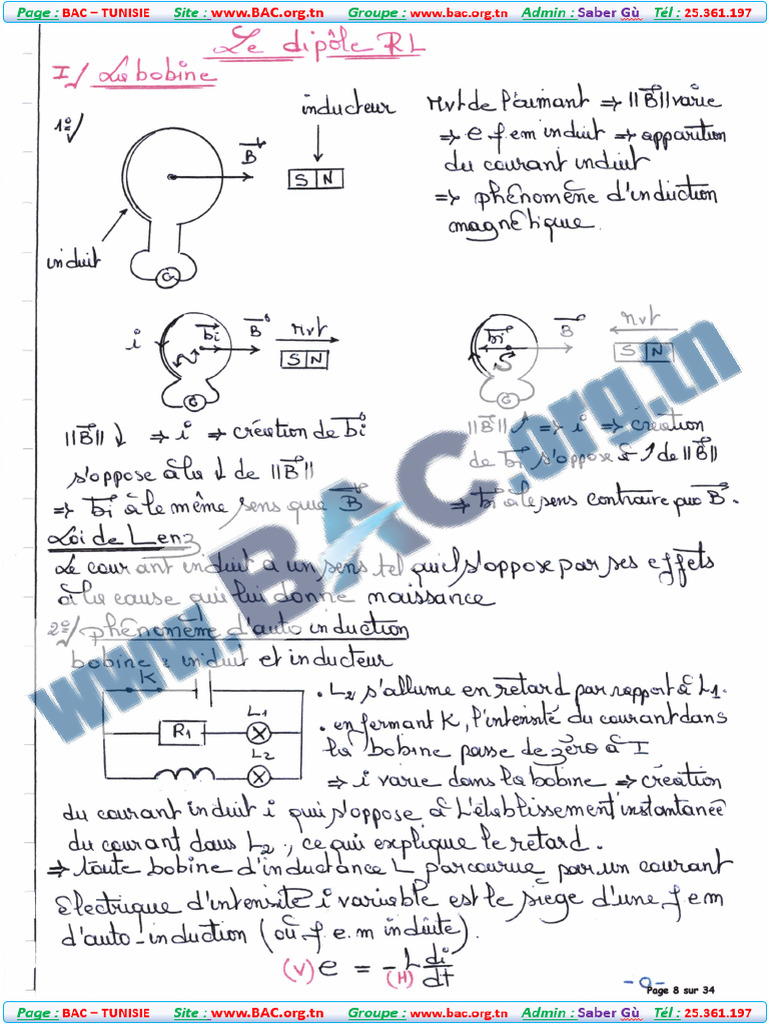 Page : BAC – TUNISIE Site : www.BAC.org.tn Groupe : www.bac.org.tn Admin : Saber Gù Tél : 25.361.197
Le dipôle RL
I/ La bobine
1°/
inducteur
B
S N
induit
G
Mvt de l'aimant ⇒ ||B|| varie
⇒ e f em induit ⇒ apparition
du courant induit
⇒ phénomène d'induction
magnétique.
i bi B Mvt
S N
G
bi B Mvt
S N
G
||B|| ↓ ⇒ i ⇒ création de bi
s'oppose à la ↓ de ||B||
⇒ bi à le même sens que B
||B|| ↑ ⇒ i ⇒ création
de bi s'oppose à ↑ de ||B||
⇒ bi à le sens contraire que B.
Loi de Lenz
Le courant induit a un sens tel qu'il s'oppose par ses effets
à la cause qui lui donne naissance
2°/ phénomène d'auto induction
bobine : induit et inducteur
K
R1
L1
L2
. L2 s'allume en retard par rapport à L1.
. en fermant K, l'intensité du courant dans
la bobine passe de zéro à I
⇒ i varie dans la bobine ⇒ création
du courant induit i qui s'oppose à l'établissement instantanée
du courant dans L2, ce qui explique le retard.
⇒ toute bobine d'inductance L parcourue par un courant
Electrique d'intensité i variable est le siège d'une f em
d'auto-induction (où f e.m induite).
(V) e = -L di/dt
(H)
- 9 -
Page 8 sur 34
www.BAC.org.tn
Page : BAC – TUNISIE Site : www.BAC.org.tn Groupe : www.bac.org.tn Admin : Saber Gù Tél : 25.361.197